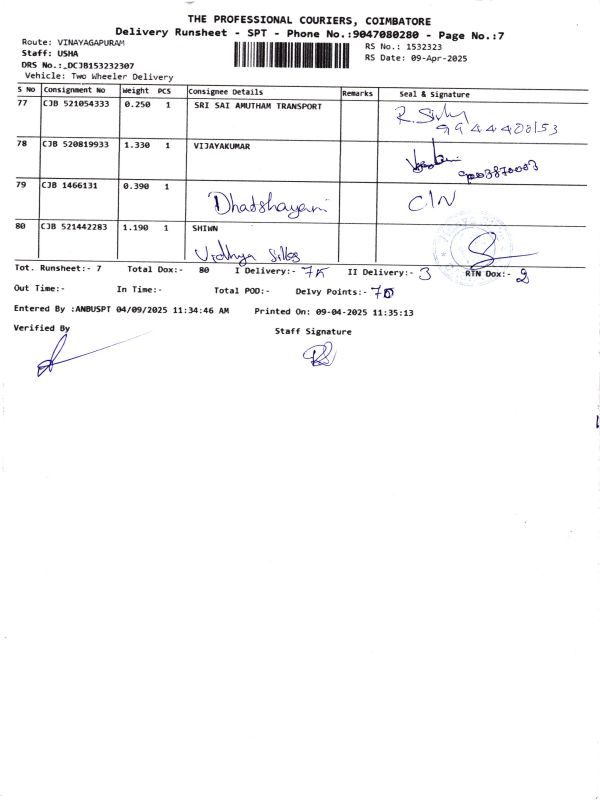 THE PROFESSIONAL COURIERS, COIMBATORE
Delivery Runsheet - SPT - Phone No.:9047080280 - Page No.:7
Route: VINAYAGAPURAM
RS No.: 1532323
Staff: USHA
RS Date: 09-Apr-2025
DRS No.:_DCJB153232307
Vehicle: Two Wheeler Delivery
S No Consignment No Weight PCS Consignee Details Remarks Seal & Signature
77 CJB 521054333 0.250 1 SRI SAI AMUTHAM TRANSPORT
9944400153
78 CJB 520819933 1.330 1 VIJAYAKUMAR
79 CJB 1466131 0.390 1
Dhatshayani C/N
80 CJB 521442283 1.190 1 SHIWN
Vidhya Silks
Tot. Runsheet:- 7 Total Dox:- 80 I Delivery:- II Delivery:- 3 RTN Dox:- 2
Out Time:- In Time:- Total POD:- Delvy Points:-
Entered By :ANBUSPT 04/09/2025 11:34:46 AM Printed On: 09-04-2025 11:35:13
Verified By
Staff Signature